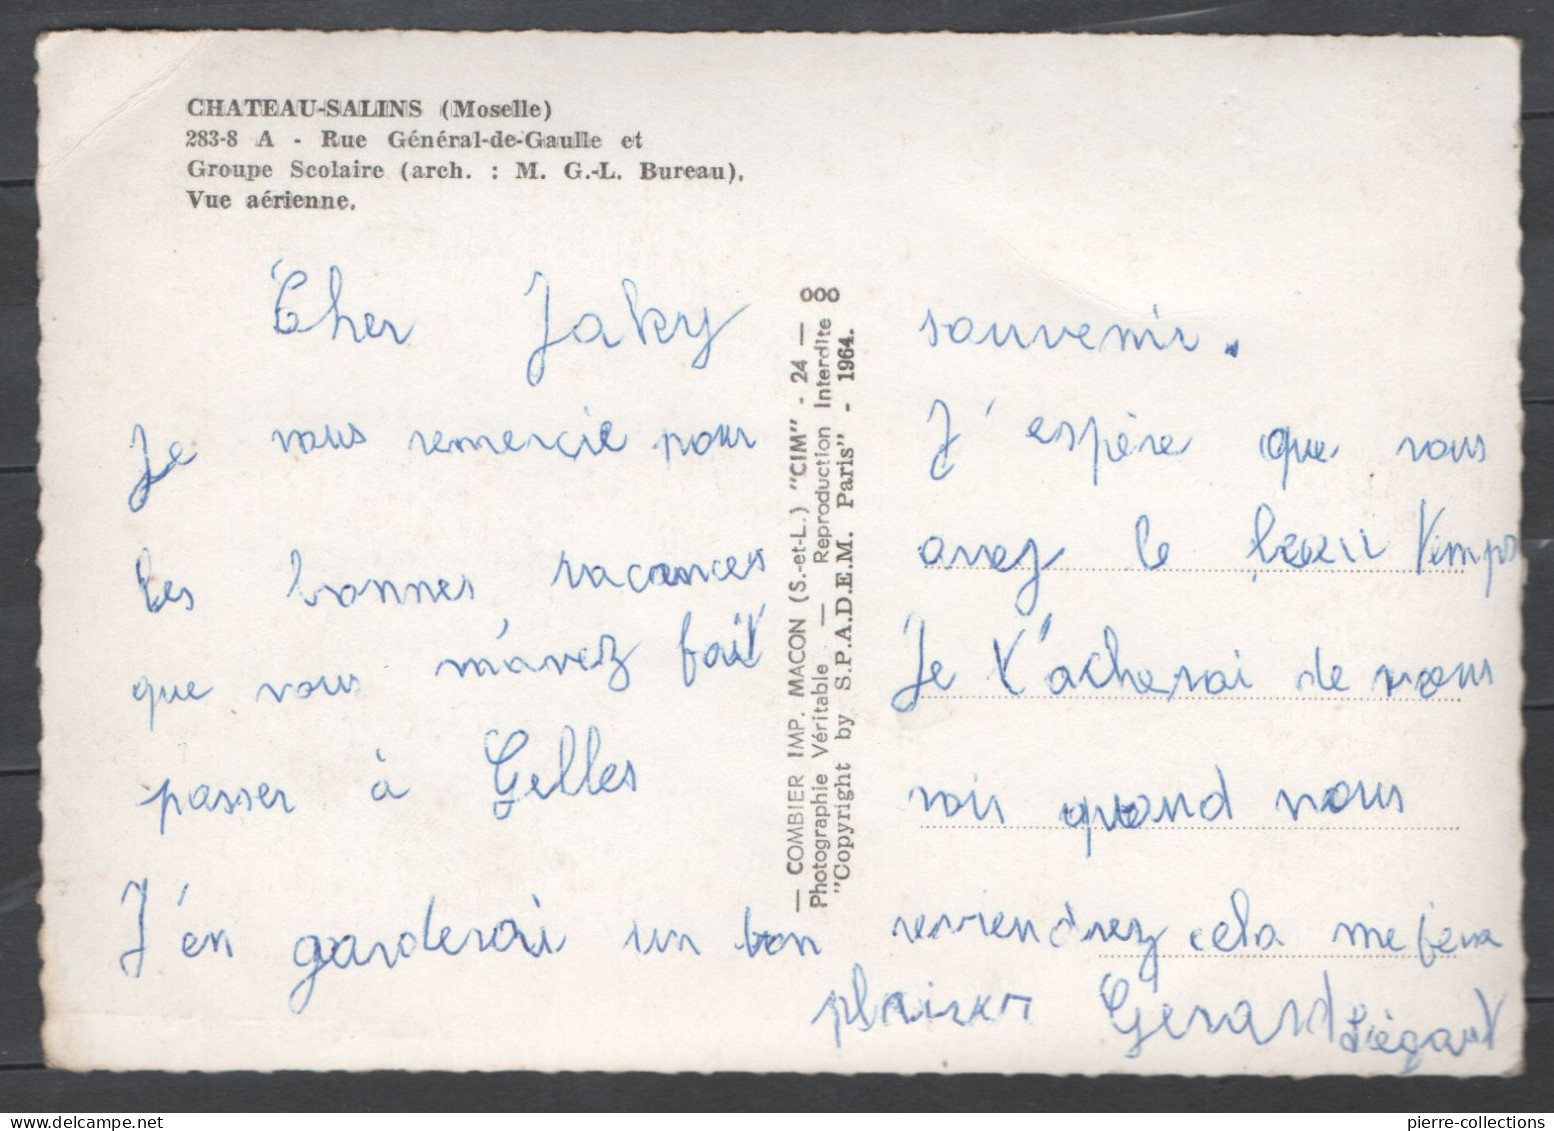 CHATEAU-SALINS (Moselle)
283-8 A - Rue Général-de-Gaulle et
Groupe Scolaire (arch. : M. G.-L. Bureau).
Vue aérienne.
Cher Jaky
Je vous remercie pour
les bonnes vacances
que vous m'avez fait
passer à Gelles
J'en garderai un bon
— COMBIER IMP. MACON (S.-et-L.) "CIM" - 24 — 000
Photographie Véritable — Reproduction Interdite
"Copyright by S.P.A.D.E.M. Paris" - 1964.
souvenir.
J'espère que vous
avez le beau temps
Je t'acherai de vous
voir quand vous
reviendrez cela me fera
plaisir Gerard Liégaut
delcampe.net
pierre-collections